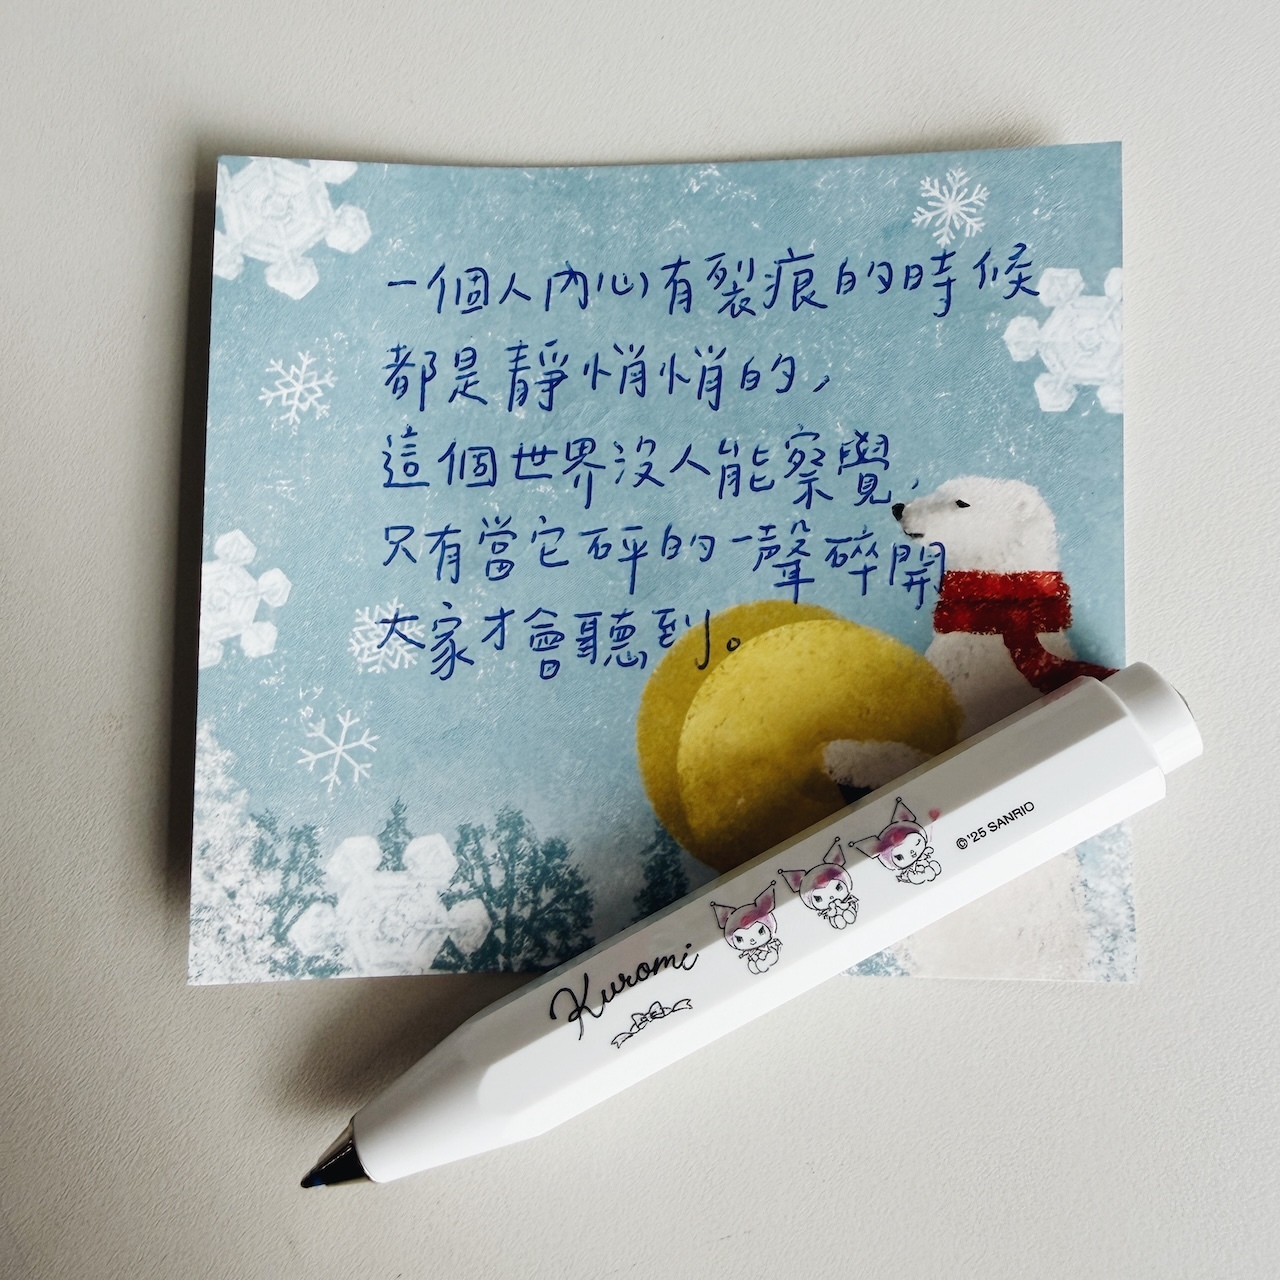 一個人內心有裂痕的時候
都是靜悄悄的，
這個世界沒人能察覺，
只有當它砰的一聲碎開
大家才會聽到。
Kuromi
©'25 SANRIO